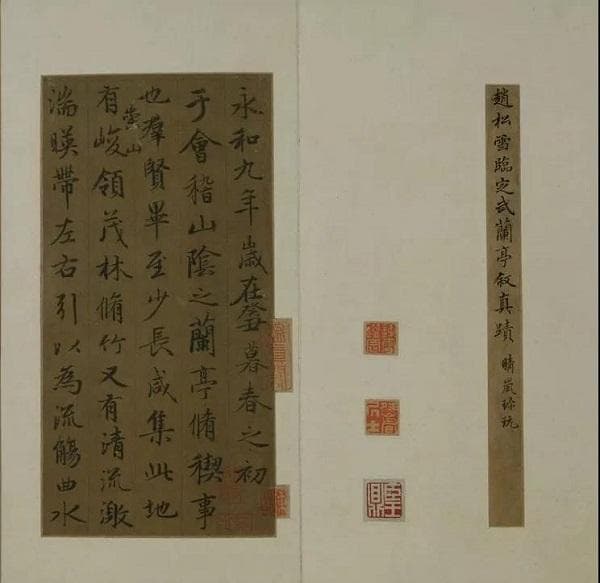 趙松雪臨定武蘭亭叙真蹟 晴嵐珍玩
永和九年歲在癸丑暮春之初
于會稽山陰之蘭亭脩稧事
也羣賢畢至少長咸集此地
有崇山峻領茂林脩竹又有清流激
湍暎帶左右引以為流觴曲水